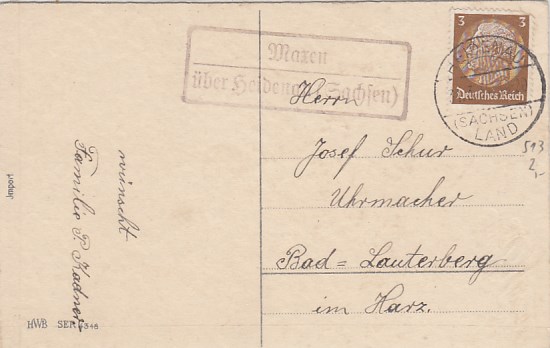 3 3
Deutsches Reich
HEIDENAU
(SACHSEN)
LAND
Maxen
über Heidenau (Sachsen)
Herrn
Josef Schur
Uhrmacher
Bad=Lauterberg
im Harz.
513
2,-
wünscht
Familie P. Kadner
Import
HWB SER.